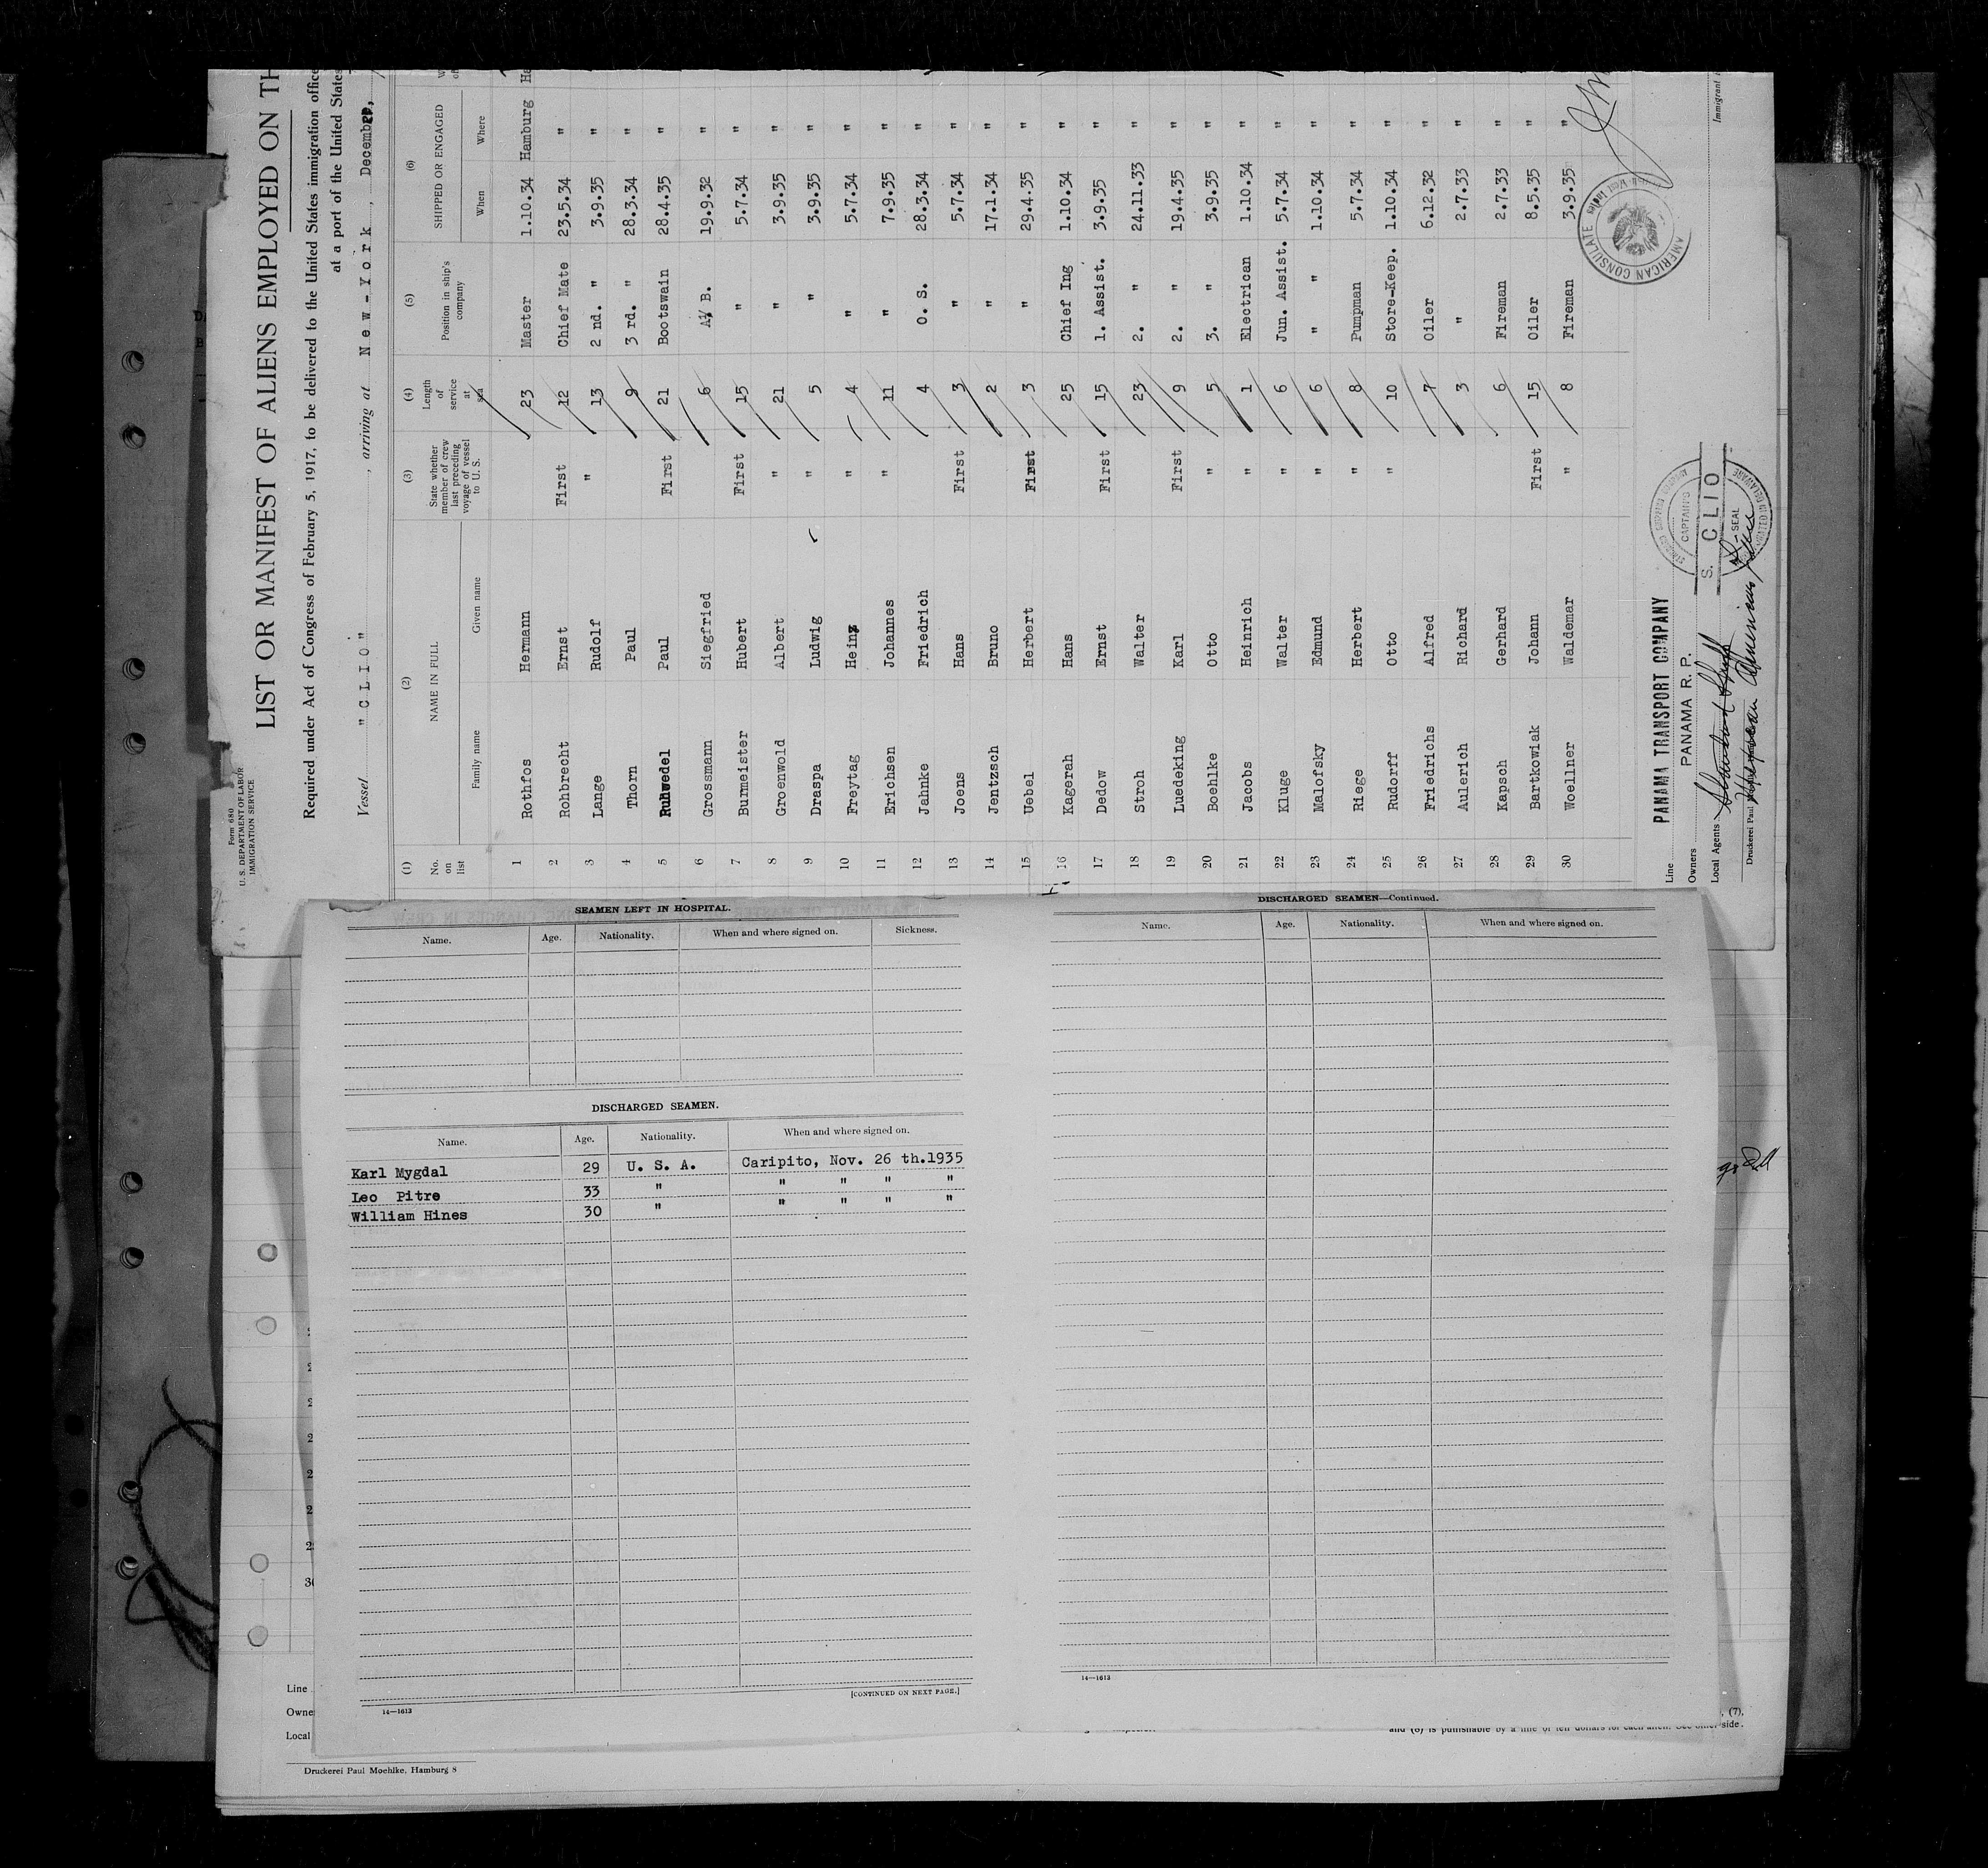 Form 680
U. S. DEPARTMENT OF LABOR
IMMIGRATION SERVICE
LIST OR MANIFEST OF ALIENS EMPLOYED ON TH
Required under Act of Congress of February 5, 1917, to be delivered to the United States immigration office
at a port of the United States
Vessel "CLIO" , arriving at New-York , December,
(1) (2) (3) (4) (5) (6)
No. on list NAME IN FULL State whether member of crew last preceding voyage of vessel to U. S. Length of service at sea Position in ship's company SHIPPED OR ENGAGED
Family name Given name When Where
1 Rothfos Hermann 23 Master 1.10.34 Hamburg Ha
2 Rohbrecht Ernst First 12 Chief Mate 23.5.34 "
3 Lange Rudolf " 13 2 nd. " 3.9.35 "
4 Thorn Paul 9 3 rd. " 28.3.34 "
5 Ruhwedel Paul First 21 Bootswain 28.4.35 "
6 Grossmann Siegfried 6 A/ B. 19.9.32 "
7 Burmeister Hubert First 15 " 5.7.34 "
8 Groenwold Albert " 21 " 3.9.35 "
9 Draspa Ludwig " 5 " 3.9.35 "
10 Freytag Heinz " 4 " 5.7.34 "
11 Erichsen Johannes " 11 " 7.9.35 "
12 Jahnke Friedrich 4 O. S. 28.3.34 "
13 Joens Hans First 3 " 5.7.34 "
14 Jentzsch Bruno 2 " 17.1.34 "
15 Uebel Herbert First 3 " 29.4.35 "
16 Kagerah Hans 25 Chief Ing 1.10.34 "
17 Dedow Ernst First 15 1. Assist. 3.9.35 "
18 Stroh Walter 23 2. " 24.11.33 "
19 Luedeking Karl First 9 2. " 19.4.35 "
20 Boehlke Otto " 5 3. " 3.9.35 "
21 Jacobs Heinrich " 1 Electrican 1.10.34 "
22 Kluge Walter " 6 Jun. Assist. 5.7.34 "
23 Malofsky Edmund " 6 " " 1.10.34 "
24 Riege Herbert " 8 Pumpman 5.7.34 "
25 Rudorff Otto " 10 Store-Keep. 1.10.34 "
26 Friedrichs Alfred 7 Oiler 6.12.32 "
27 Aulerich Richard 3 " 2.7.33 "
28 Kapsch Gerhard 6 Fireman 2.7.33 "
29 Bartkowiak Johann First 15 Oiler 8.5.35 "
30 Woellner Waldemar " 8 Fireman 3.9.35 "
AMERICAN CONSULATE
Immigrant
Line PANAMA TRANSPORT COMPANY
Owners PANAMA R. P.
Local Agents
Druckerei Paul
CAPTAIN'S
S. CLIO
SEAL
SEAMEN LEFT IN HOSPITAL.
Name. Age. Nationality. When and where signed on. Sickness.
DISCHARGED SEAMEN.
Name. Age. Nationality. When and where signed on.
Karl Mygdal 29 U. S. A. Caripito, Nov. 26 th.1935
Leo Pitre 33 " " " " "
William Hines 30 " " " " "
[CONTINUED ON NEXT PAGE.]
14—1613
DISCHARGED SEAMEN—Continued.
Name. Age. Nationality. When and where signed on.
14—1613
Line
Owne
Local
, (7),
and (8) is punishable by a fine of ten dollars for each alien. See other side.
Druckerei Paul Moehlke, Hamburg 8